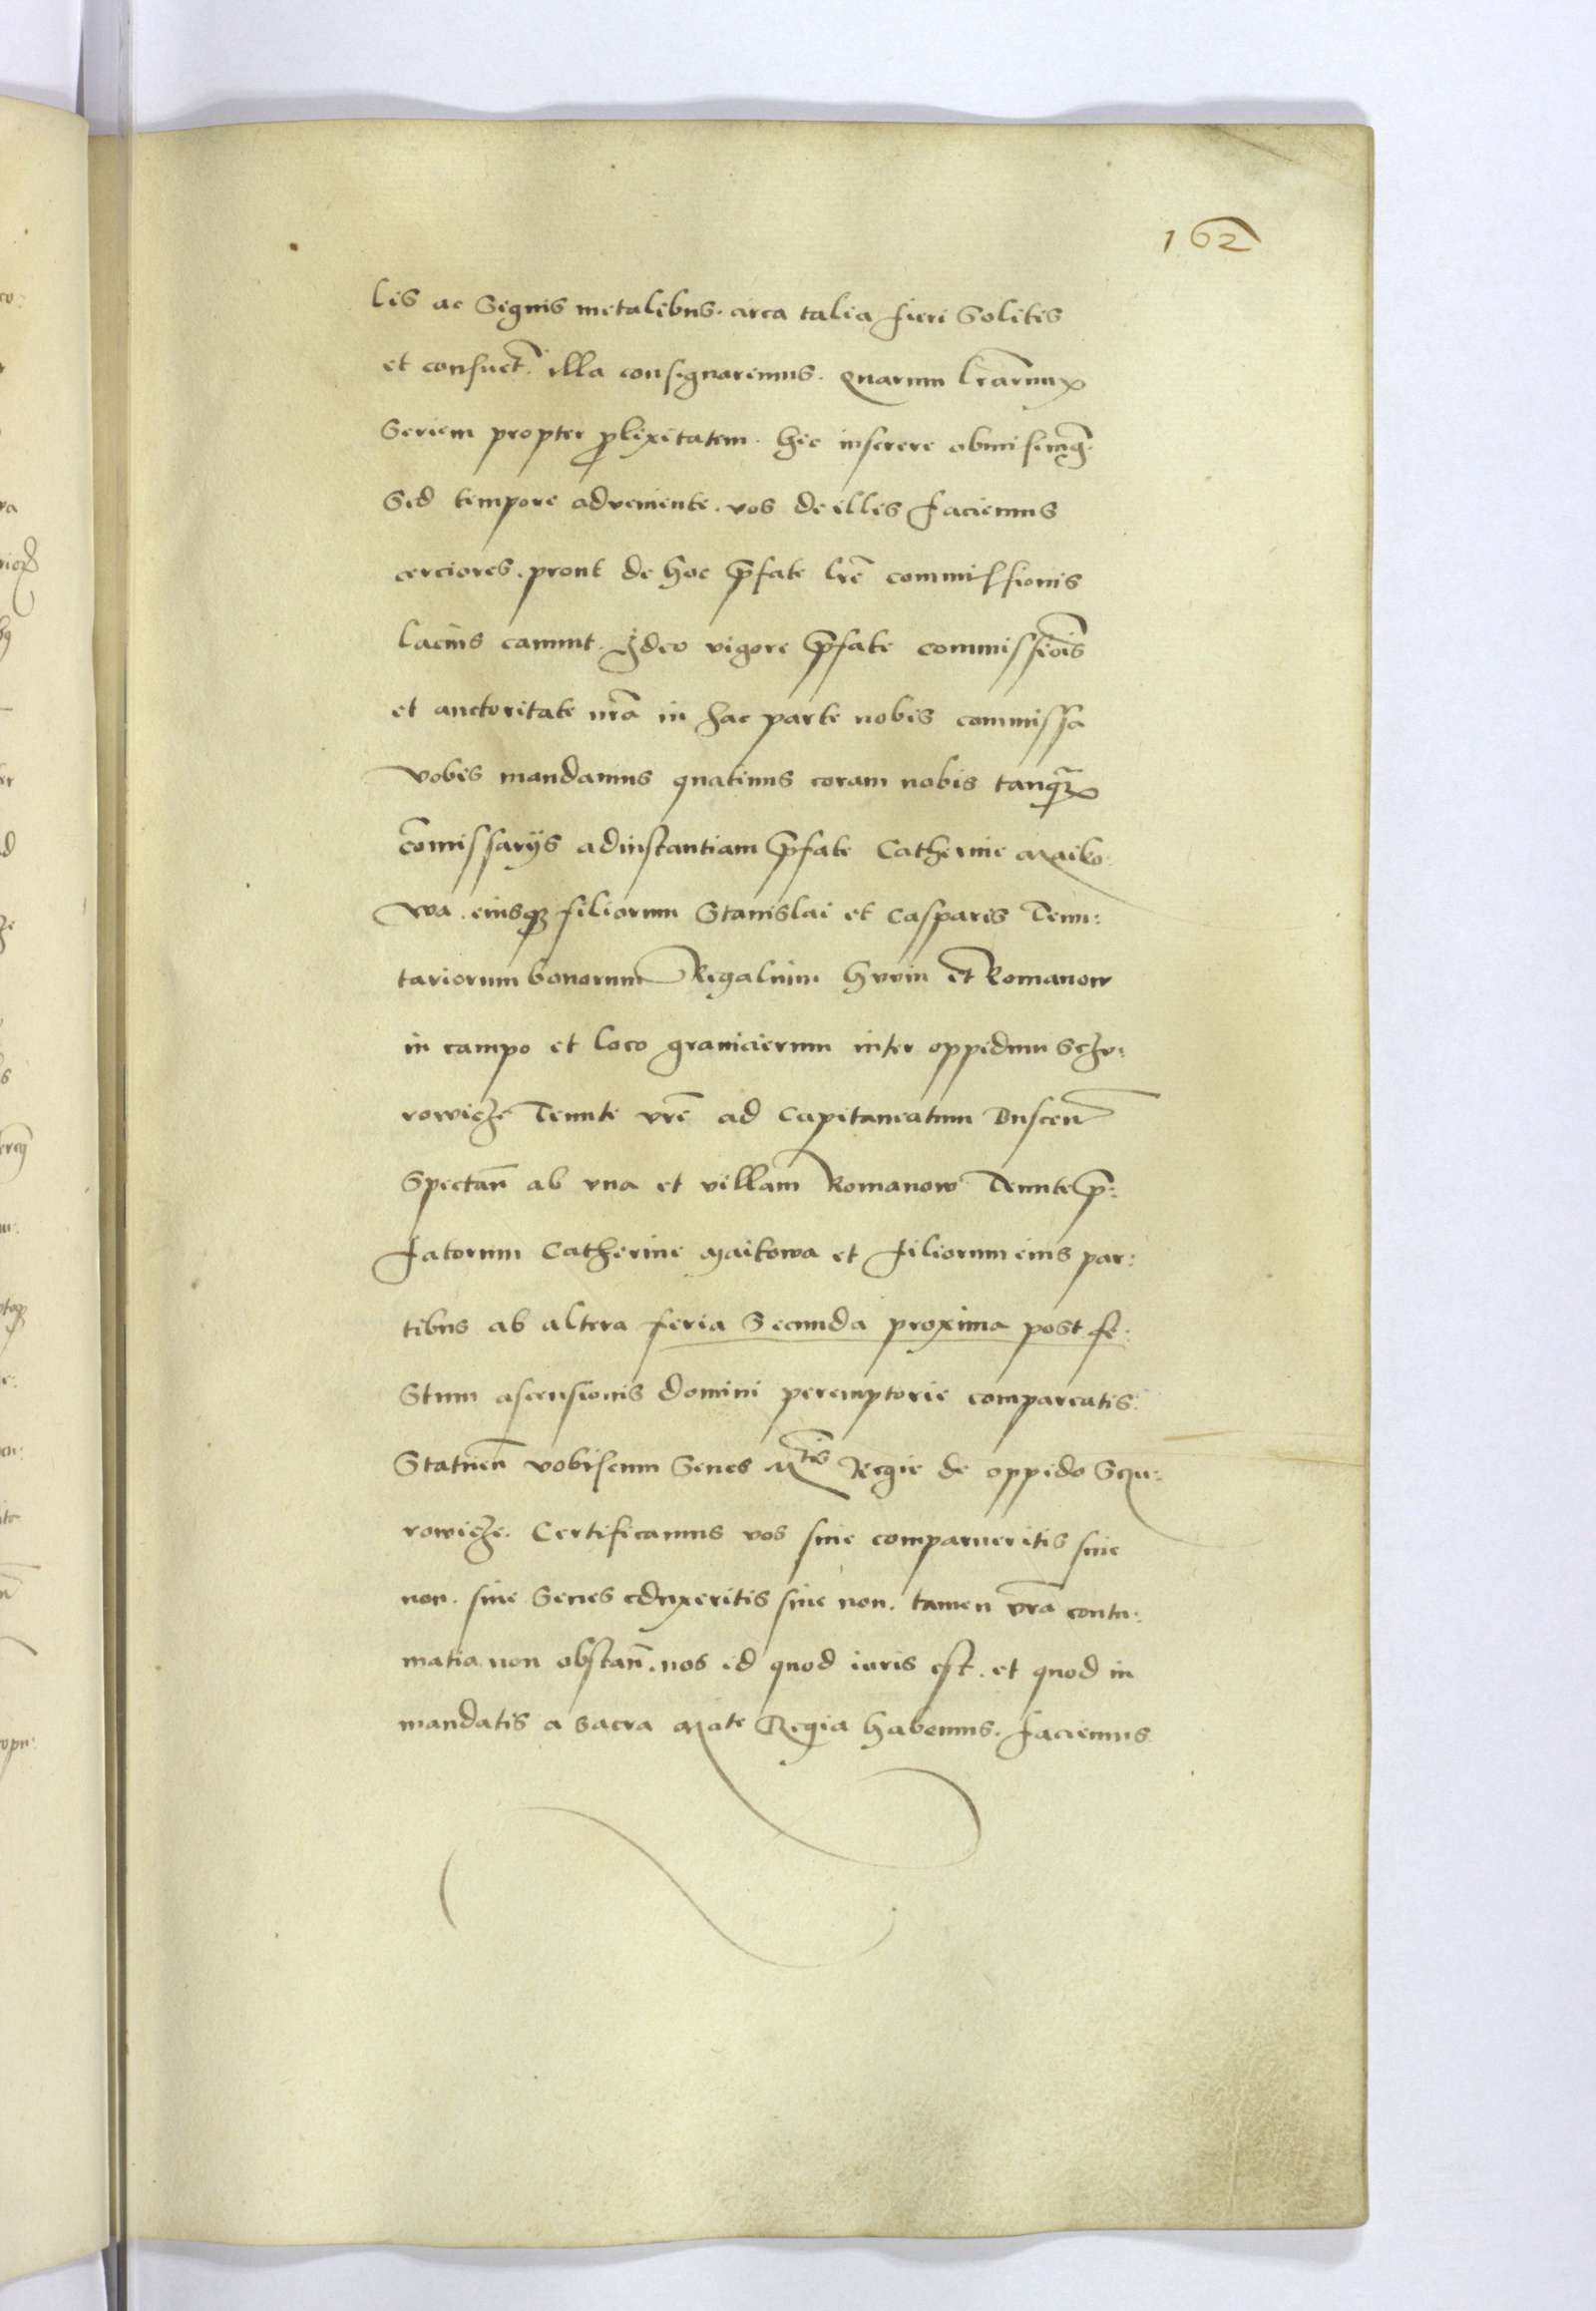 162
lis ac Signis metalibus. circa talia fieri Solitis
et consuet̃. illa consignaremus. quarum lr̃arum
Seriem propter ꝓlixitatem. hic inserere obmisimꝰ.
Sed tempore adveniente. vos de illis faciemus
cerciores. prout de hoc p̃fate lr̃e commissionis
lacius canunt. Ideo vigore p̃fate commissiõis
et auctoritate nr̃a in hac parte nobis commissa
vobis mandamus quatinus coram nobis tanq̃
cõmissarijs ad instantiam p̃fate Catherine Maiko
wa. eiusqꝫ filiorum Stanislai et Casparis Tenu:
tariorum bonorum Regalium et Romanow
in campo et loco granicierum inter oppidum Sczu:
rowicze Tenute vr̃e ad Capitaneatum Buscen̄
Spectan̄ ab vna et villam Romanow Tenute p̃:
fatorum Catherine Maikowa et filiorum eius par:
tibus ab altera feria Secunda proxima post fe:
Stum ascensionis domini peremptorie compareatis.
Statuen̄ vobiscum Senes M̃tis Regie de oppido Sczu:
rowicze. Certificamus vos siue comparueritis siue
non. siue Senes eduxeritis siue non. tamen vr̃a contu:
matia non obstan̄. nos id quod iuris est. et quod in
mandatis a Sacra Mate Regia habemus. faciemus